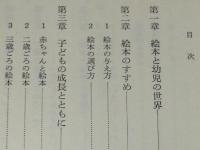 目次
第一章 絵本と幼児の世界
第二章 絵本のすすめ
1 絵本の与え方
2 絵本の選び方
第三章 子どもの成長とともに
1 赤ちゃんと絵本
2 二歳ごろの絵本
3 三歳ごろの絵本